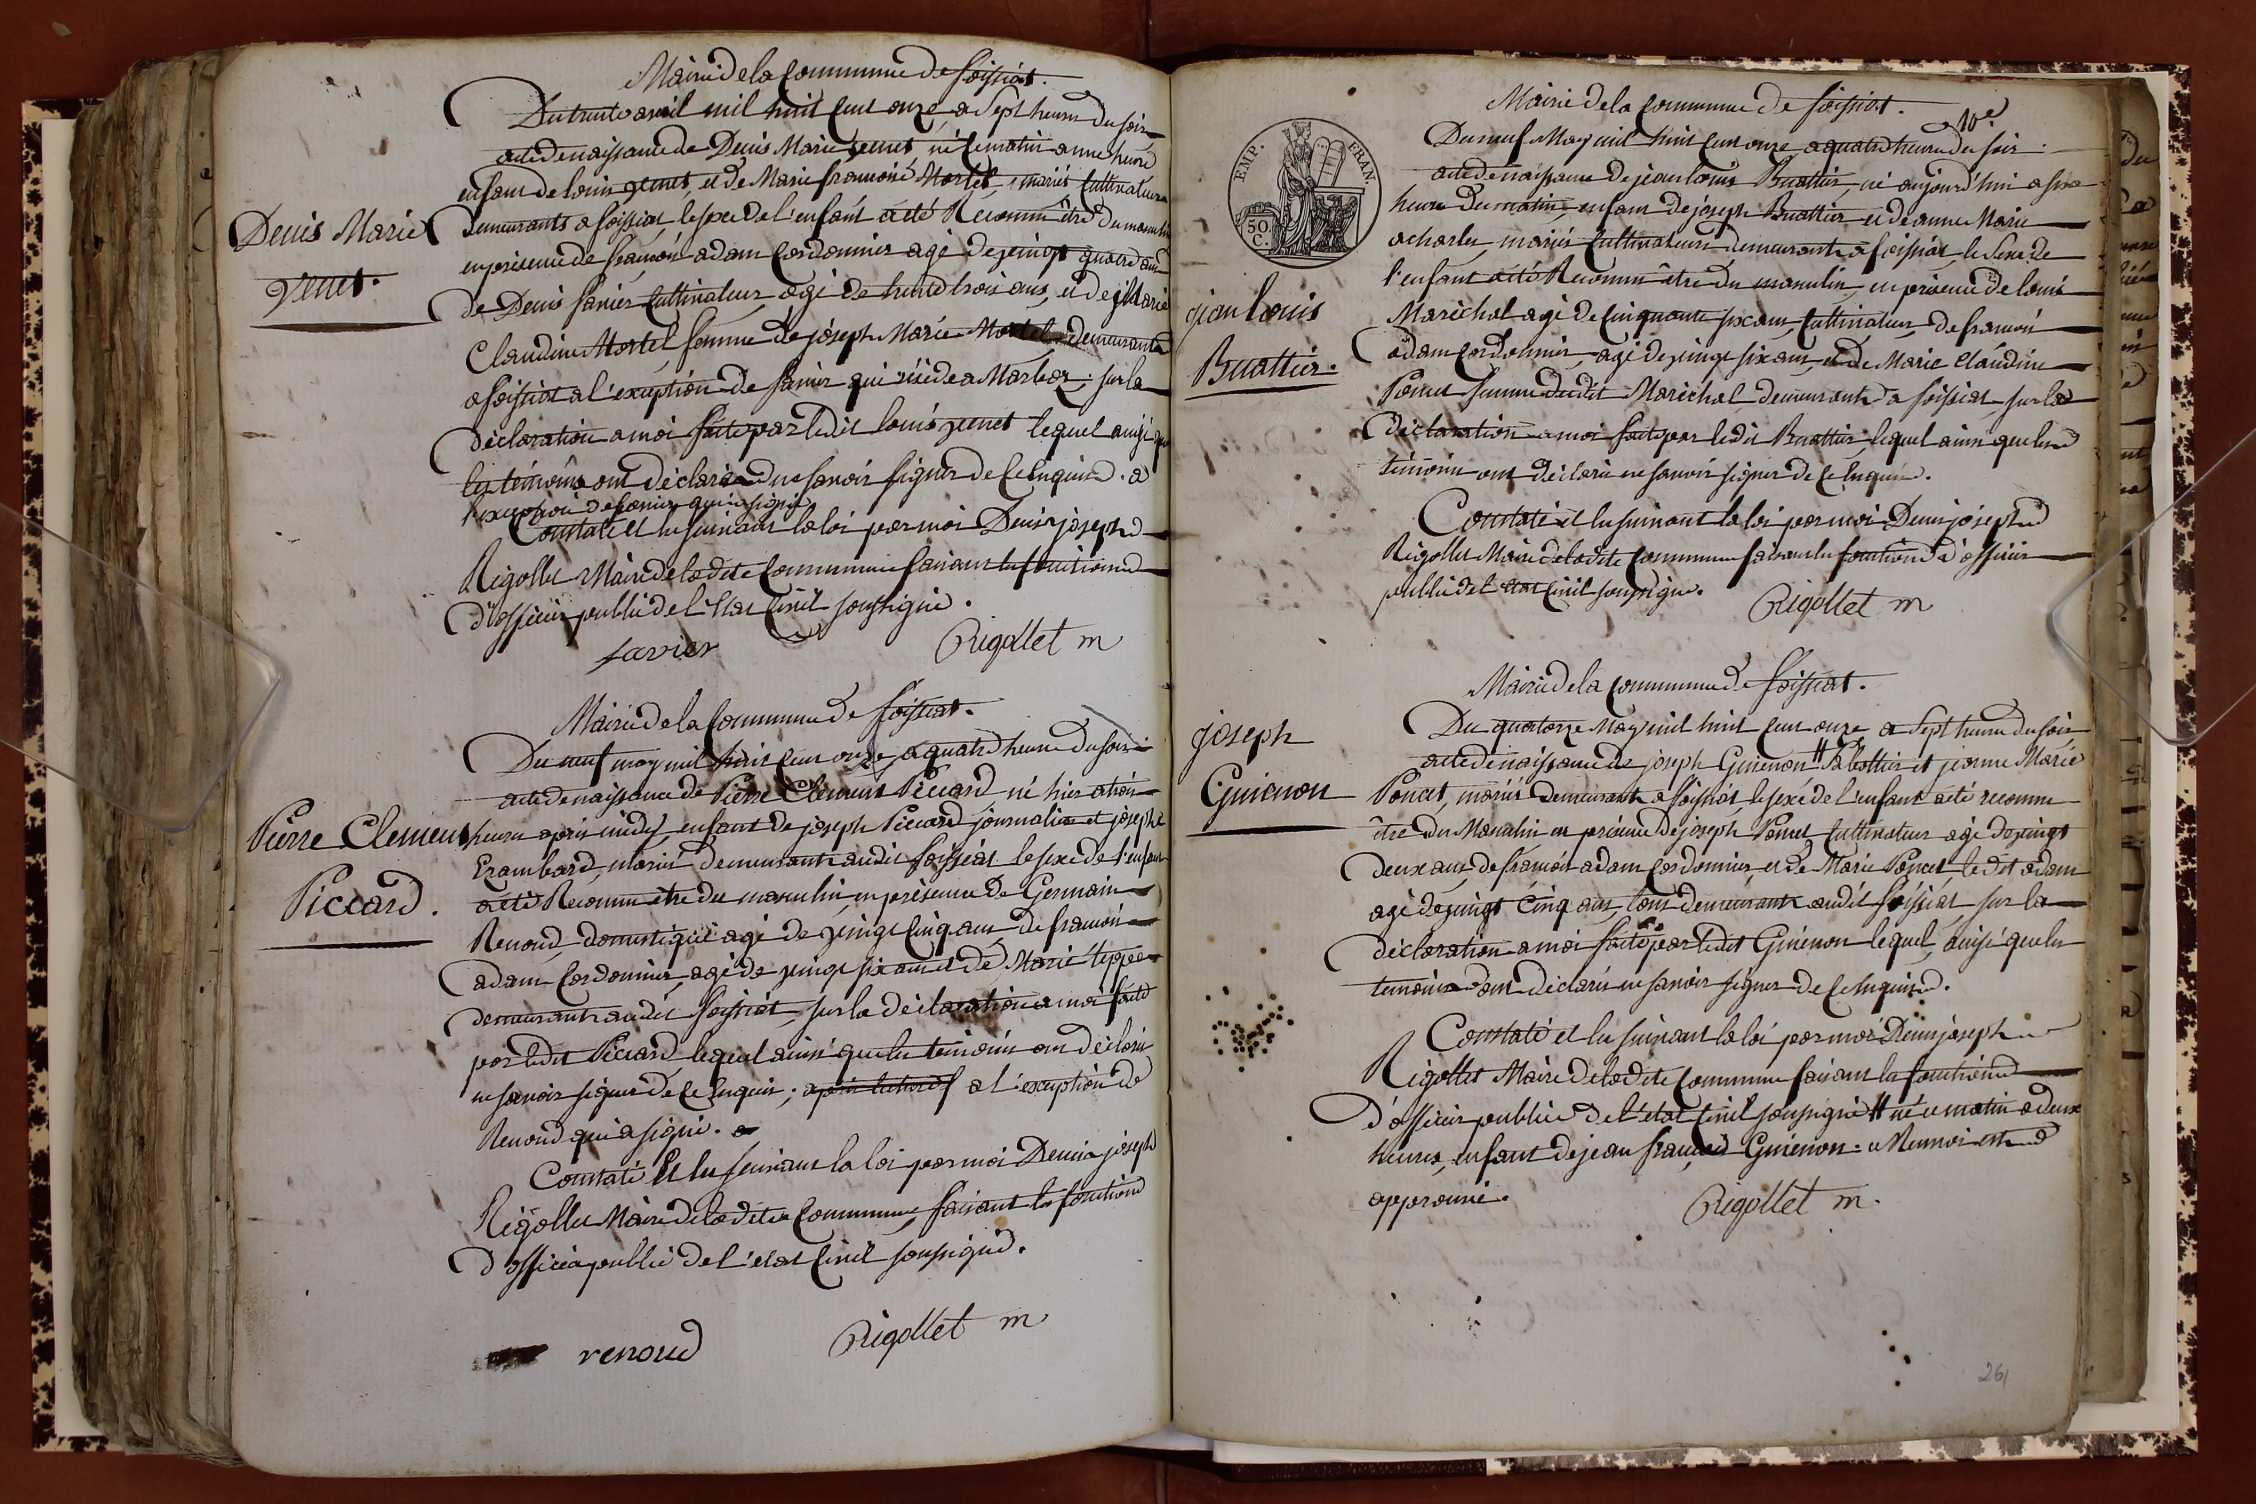 Mairie de la Commune de Foissiat.
Du trente avril mil huit cent onze a Sept heures du soir
acte de naissance de Denis Marie venet né ce matin a une heure
enfant de louis venet, et de Marie françoise Mortel, mariés Cultivateurs
Denis Marie
demeurants a foissiat, le sexe de l'enfant a été Reconnu être du masculin
en présence de françois adam Cordonnier agé de vingt quatre ans
venet.
de Denis favier Cultivateur agé de trente trois ans, et de Marie
Claudine Mortel femme de joseph Marie Mortel demeurants
a foissiat a l'exception de favier qui réside a Marboz; sur la
déclaration a moi faite par ledit louis venet lequel ainsi que
les témoins ont déclaré ne savoir signer de ce enquis. a
l'exception de favier qui a signé
Constaté et lu suivant la loi par moi Denis joseph
Rigollet Maire de la dite Commune faisant les fonctions
d'officier public de l'état Civil soussigné.
favier Rigollet m
Mairie de la Commune de foissiat.
Du neuf may mil huit cent onze, a quatre heures du soir
acte de naissance de Pierre Clement Piccard né hier a trois
Pierre Clement
heures après midy, enfant de joseph Piccard journalier et josephe
Erambard, mariés demeurants audit foissiat le sexe de l'enfant
a été Reconnu être du masculin, en présence de Germain
Piccard.
Renoud domestique agé de vingt cinq ans de françois
adam Cordonnier agé de vingt six ans et de Marie
demeurants audit foissiat, sur la déclaration a moi faite
par ledit Piccard, lequel ainsi que les témoins ont déclaré
ne savoir signer de ce enquis; a l'exception de
Renoud qui a signé.
Constaté et lu suivant la loi par moi Denis joseph
Rigollet Maire de la dite Commune, faisant les fonctions
d'officier public de l'état Civil soussigné.
renoud Rigollet m
Mairie de la Commune de foissiat.
10e
EMP. FRAN.
50 C.
Du neuf May mil huit cent onze a quatre heures du soir
acte de naissance de jean louis Buattier, né aujourd'hui a six
heures du matin, enfant de joseph Buattier et de anne Marie
acharles, mariés Cultivateurs demeurants a foissiat, le sexe de
l'enfant a été Reconnu être du masculin, en présence de louis
jean louis
Marichal agé de Cinquante six ans, Cultivateur, de françois
adam Cordonnier, agé de vingt six ans, et de Marie Claudine
Buattier.
Poncet femme dudit Marichal demeurants a foissiat, sur la
déclaration a moi faite par ledit Buattier, lequel ainsi que les
témoins ont déclaré ne savoir signer de ce enquis.
Constaté et lu suivant la loi par moi Denis joseph
Rigollet Maire de la dite Commune faisant les fonctions d'officier
public de l'état Civil soussigné.
Rigollet m
Mairie de la Commune de foissiat.
joseph
Du quatorze May mil huit cent onze a Sept heures du soir
acte de naissance de joseph Guienon # Sabottier et jeanne Marie
Guienon
Poncet, mariés demeurants a foissiat le sexe de l'enfant a été reconnu
être du Masculin en présence de joseph Poncet Cultivateur agé de vingt
deux ans, de françois adam Cordonnier, et de Marie Poncet ledit adam
agé de vingt Cinq ans, tous demeurants audit foissiat, sur la
déclaration a moi faite par ledit Guienon lequel, ainsi que les
temoins ont déclaré ne savoir signer de ce enquis.
Constaté et lu suivant la loi par moi Denis joseph
Rigollet Maire de la dite Commune faisant les fonctions
d'officier public de l'état Civil soussigné # né ce matin a deux
heures, enfant de jean français Guienon. ce Renvoi est
approuvé.
Rigollet m.
261